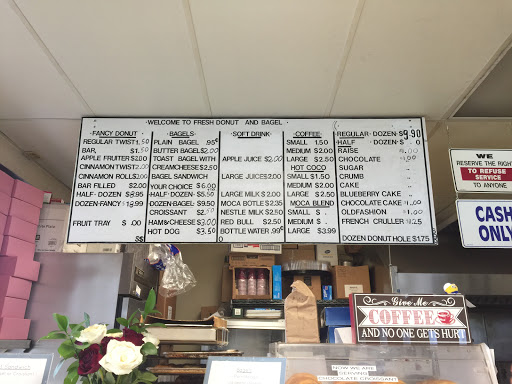 WELCOME TO FRESH DONUT AND BAGEL
FANCY DONUT
REGULAR TWIST 1.50
BAR, $1.50
APPLE FRUITER $2.00
CINNAMON TWIST 2.00
CINNAMON ROLL $2.00
BAR FILLED $2.00
HALF-DOZEN
DOZEN-FANCY
FRUIT TRAY $ .00
BAGELS
PLAIN BAGEL .95¢
BUTTER BAGEL $2.00
TOAST BAGEL WITH
CREAMCHEESE $2.50
BAGEL SANDWICH
YOUR CHOICE $6.00
HALF-DOZEN-$5.50
DOZEN-BAGEL $9.50
CROISSANT
HAM&CHEESE
HOT DOG $3.50
SOFT DRINK
APPLE JUICE $2.00
LARGE JUICE $2.00
LARGE MILK $2.00
MOCA BOTLE $2.35
NESTLE MILK $2.50
RED BULL $2.50
BOTTLE WATER .99¢
COFFEE
SMALL 1.50
MEDIUM $2.00
LARGE $2.50
HOT COCO
SMALL $1.50
MEDIUM $2.00
LARGE $2.50
MOCA BLEND
SMALL $ .
MEDIUM $
LARGE $3.99
REGULAR DOZEN-$9.90
HALF DOZEN $
RAISE 1.00
CHOCOLATE 1.00
SUGAR
CRUMB
CAKE
BLUEBERRY CAKE
CHOCOLATE CAKE 1.00
OLDFASHION $1.00
FRENCH CRULLER $1.25
DOZEN DONUT HOLE $1.75
WE
RESERVE THE RIGHT
TO REFUSE
SERVICE
TO ANYONE
CASH
ONLY
Give Me
COFFEE
AND NO ONE GETS HURT
NOW WE ARE
SERVING
CHOCOLATE CROISSANT